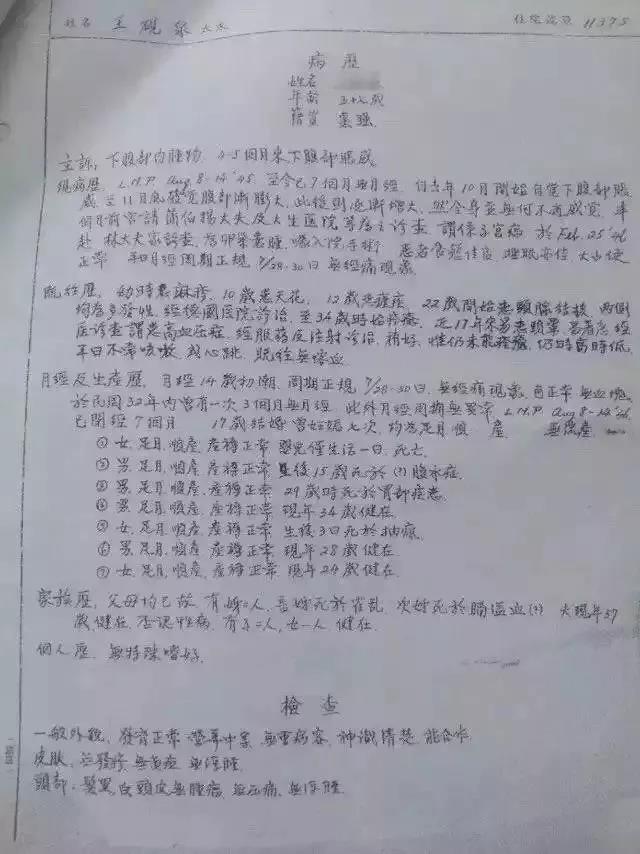 姓名 王硯泉太太 住院號頭 11375
病歷
姓名
年齡 五十七歲
籍貫 棗强
主訴, 下腹部内腫物, 4-5個月来下腹部脹感
現病歷, L.M.P. Aug 8-14 '45, 至今已7個月無月經, 自去年10月開始自覺下腹部脹
感, 至11月底發覺腹部漸膨大, 此後則逐漸增大, 然全身並無何不適感覺,
個月前常請蕭伯揚大夫及大生医院等處主診查, 謂係子宮瘤, 於Feb. 25 '46
赴林大夫家診查, 爲卵巢囊腫, 囑入院手術, 患者食慾佳良, 睡眠安佳, 大小便
正常, 和月經周期正規, 7/28-30日, 無經痛現象
既往歷, 幼時患麻疹, 10歲患天花, 12歲患瘧疾, 22歲開始患頸腺結核, 兩側
均為多發性, 經德國医院診治, 至34歲時始痊癒, 近17年來常患頭暈, 曾者忽經
医診查謂患高血压症, 經服藥及注射診治, 稍好, 惟仍未能痊癒, 仍時高時低,
平日不常咳嗽, 或心跳, 既往無咯血
月經及生産歷, 月經14歲初潮, 周期正規, 7/28-30日, 無經痛現象, 色正常, 無血塊,
於民国32年内曾有一次3個月無月經, 此外月經周期無異常, L.M.P. Aug 8-14 '45,
已閉經7個月 17歲結婚, 曾妊娠七次, 均為足月順産, 無流産
① 女, 足月, 順産, 産褥正常, 嬰兒僅生活一日, 死亡.
② 男, 足月, 順産, 産褥正常, 生後15歲死於(?)腹水症.
③ 男, 足月, 順産, 産褥正常, 29歲時死於胃部疾患.
④ 男, 足月, 順産, 産褥正常, 現年34歲健在.
⑤ 女, 足月, 順産, 産褥正常, 生後3日死於抽瘋.
⑥ 男, 足月, 順産, 産褥正常, 現年28歲健在.
⑦ 女, 足月, 順産, 産褥正常, 現年24歲健在.
家族歷, 父母均已故, 有姊二人, 長姊死於霍乱, 次姊死於腦溢血(?) 夫現年57
歲健在, 否認性病, 有子二人, 女一人, 健在.
個人歷, 無特殊嗜好.
檢查
一般外觀, 發育正常, 營養中等, 無重病容, 神識清楚, 能合作.
皮膚, 無發疹, 無黄疸, 無浮腫.
頭部, 髮黑白, 頭皮無腫瘤, 無压痛, 無浮腫.